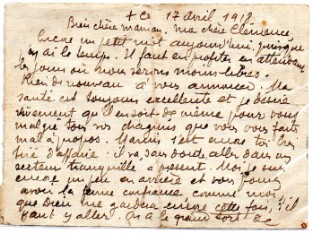 + Ce 17 avril 1918
Bien chère maman, ma chère Clémence,
Encore un petit mot aujourd'hui, puisque
j'en ai le temps. Il faut en profiter en attendant
les jours où nous serons moins libres.
Rien de nouveau à vous annoncer. Ma
santé est toujours excellente et je désire
vivement qu'il en soit de même pour vous
malgré tous vos chagrins que vous vous faites
mal à propos. Marius s'est encore très bien
tiré d'affaire : il va sans doute aller dans un
secteur tranquille à présent. Moi je suis
encore un peu en arrière et vous pouvez
avoir la ferme confiance comme moi
que Dieu me gardera encore cette fois, s'il
faut y aller. On a le grand